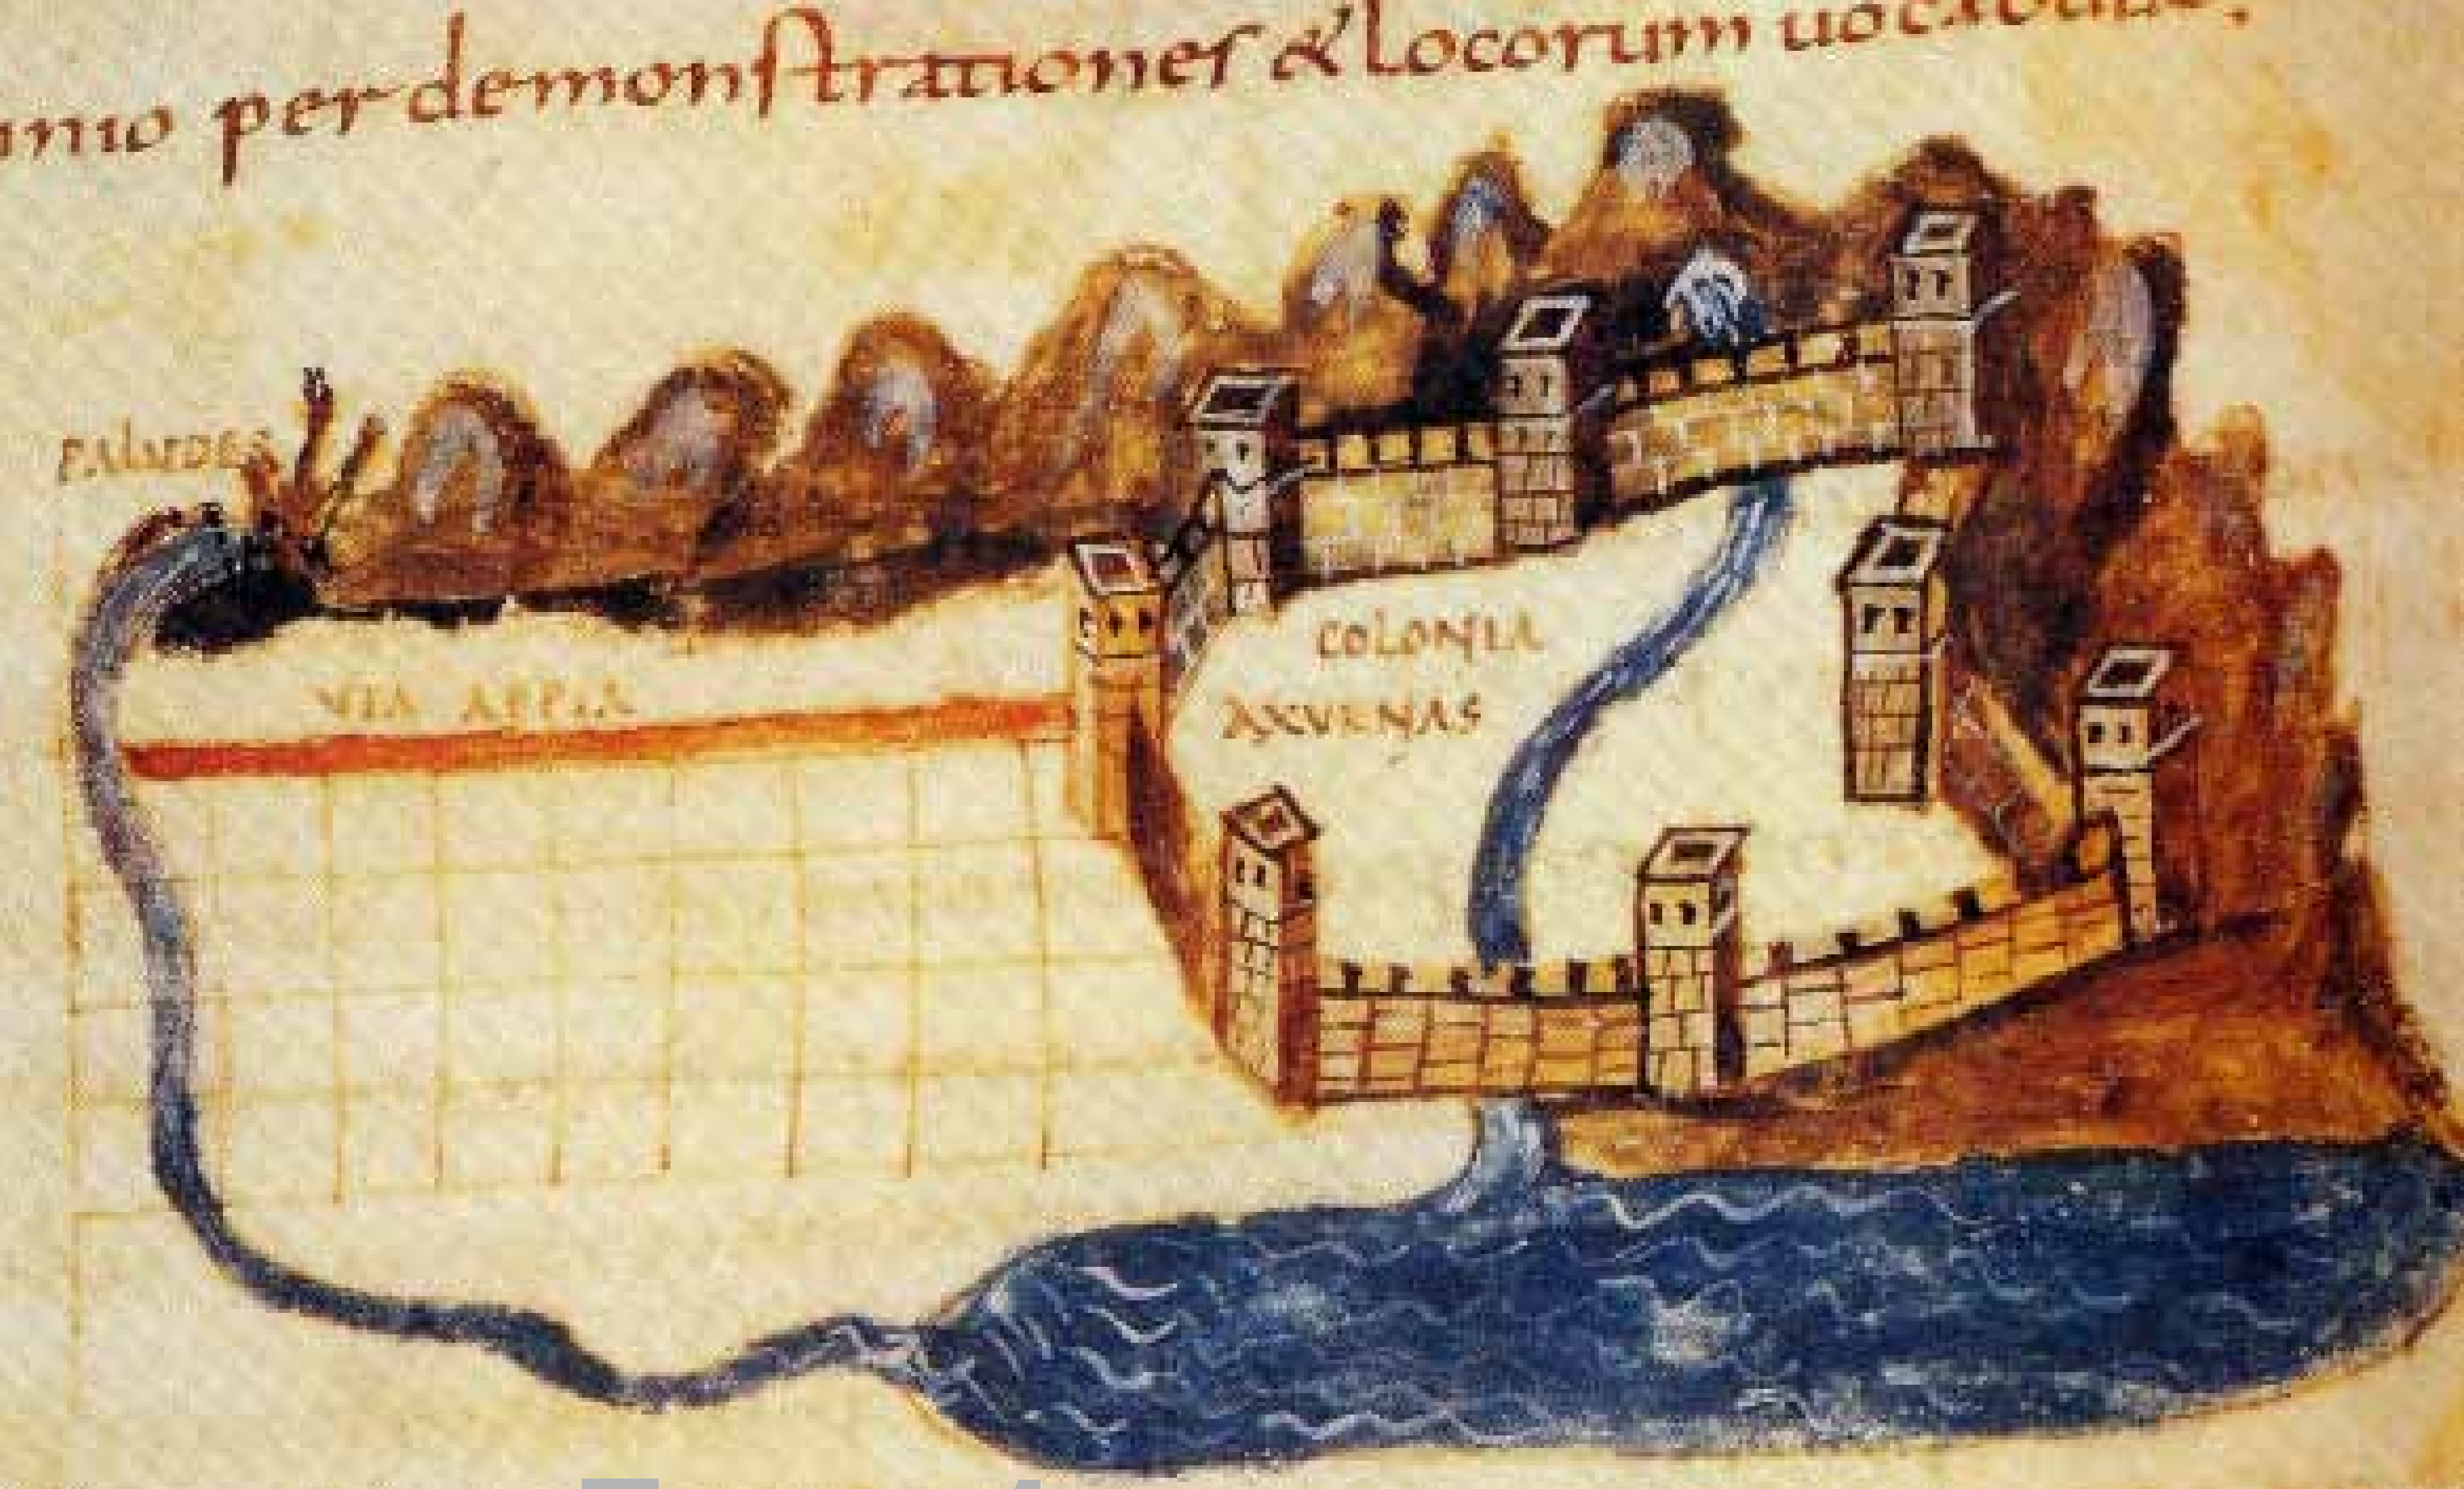 per demonstrationes & locorum
PALUDES
VIA APPIA
COLONIA
AXVRNAS